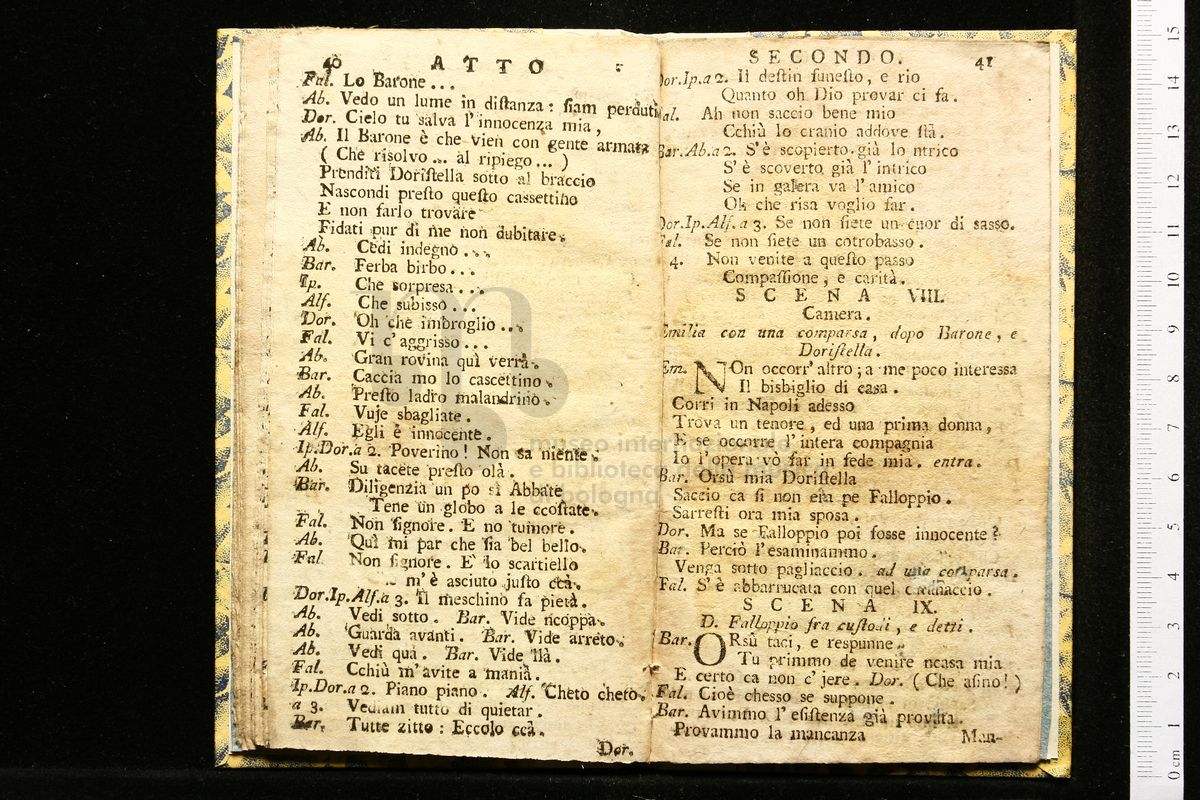 40 ATTO
Fal. Lo Barone...
Ab. Vedo un lume in distanza: siam perduti
Dor. Cielo tu salva l'innocenza mia,
Ab. Il Barone è che vien con gente armata
( Che risolvo... al ripiego... )
Prenditi Doristella sotto al braccio
Nascondi presto questo cassettino
E non farlo trovare
Fidati pur di me non dubitare.
Ab. Cedi indegno...
Bar. Ferba birbo...
Ip. Che sorpresa...
Alf. Che subisso...
Dor. Oh che imbroglio...
Fal. Vi c'aggrisso...
Ab. Gran rovina quì verrà.
Bar. Caccia mo lo cascettino.
Ab. Presto ladro malandrino.
Fal. Vuje sbagliate.
Alf. Egli è innocente.
Ip.Dor.a 2. Poverino! Non sa niente.
Ab. Su tacete presto olà.
Bar. Diligenzia un po sì Abbate
Tene un globo a le ccostate.
Fal. Non signore. E no tumore.
Ab. Quì mi par che sia bel bello.
Fal. Non signore. E lo scartiello
m'è asciuto justo ccà.
Dor.Ip.Alf.a 3. Il meschino fa pietà.
Ab. Vedi sotto. Bar. Vide ncoppa.
Ab. Guarda avanti. Bar. Vide arreto.
Ab. Vedi quà. Bar. Vide llà.
Fal. Cchiù m'avite a manià.
Ip.Dor.a 2. Piano piano. Alf. Cheto cheto.
a 3. Vediam tutto di quietar.
Bar. Tutte zitto: Eccolo ccà.
Dor.
SECONDO. 41
Dor.Ip.a 2. Il destin funesto, e rio
Quanto oh Dio provar ci fa.
Fal. Ah non saccio bene mio
Cchiù lo cranio addove stà.
Bar.Ab.a 2. S'è scopierto già lo ntrico
S'è scoverto già l'intrico
Se in galera va l'amico
Oh che risa voglio far.
Dor.Ip.Alf.a 3. Se non siete un cuor di sasso.
Fal. Se non siete un cotrobasso.
4. Non venite a questo passo
Compassione, e carità.
SCENA VIII.
Camera.
Emilia con una comparsa, dopo Barone, e
Doristella.
Em. NOn occorr'altro; a me poco interessa
Il bisbiglio di casa.
Corri in Napoli adesso
Trova un tenore, ed una prima donna,
E se occorre l'intera compagnia
Io l'opera vò far in fede mia. entra.
Bar. Orsù mia Doristella
Saccio ca si non era pe Falloppio.
Sarresti ora mia sposa.
Dor. Ma se Falloppio poi fosse innocente?
Bar. Perciò l'esaminammo.
Venga sotto pagliaccio. ad una comparsa.
Fal. S'è abbarrucata con quel
SCENA IX.
D. Falloppio fra custodi, e detti.
Bar. ORsù taci, e respunne.
Tu primmo de venire ncasa mia
E certo ca non c'jere. Dor. ( Che asino! )
Fal. Cioè chesso se suppone.
Bar. Avimmo l'esistenza già provata.
Provammo la mancanza
Man-
museo internazionale
e biblioteca della musica
di bologna